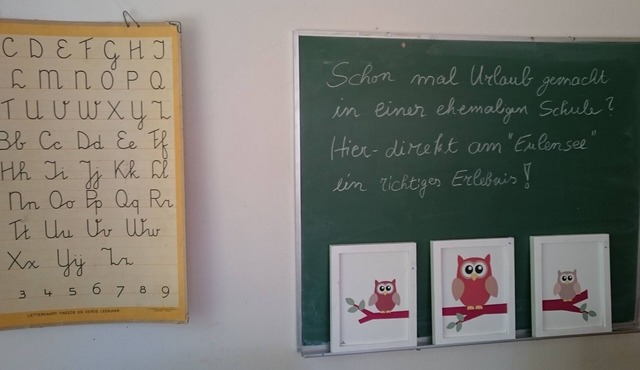 C D E F G H I
L M N O P Q
T U V W X Y Z
Bb Cc Dd Ee Ff
Hh Ii Jj Kk Ll
Nn Oo Pp Qq Rr
Tt Uu Vv Ww
Xx Yy Zz
3 4 5 6 7 8 9
Schon mal Urlaub gemacht
in einer ehemaligen Schule?
Hier - direkt am "Eulensee"
ein richtiges Erlebnis!